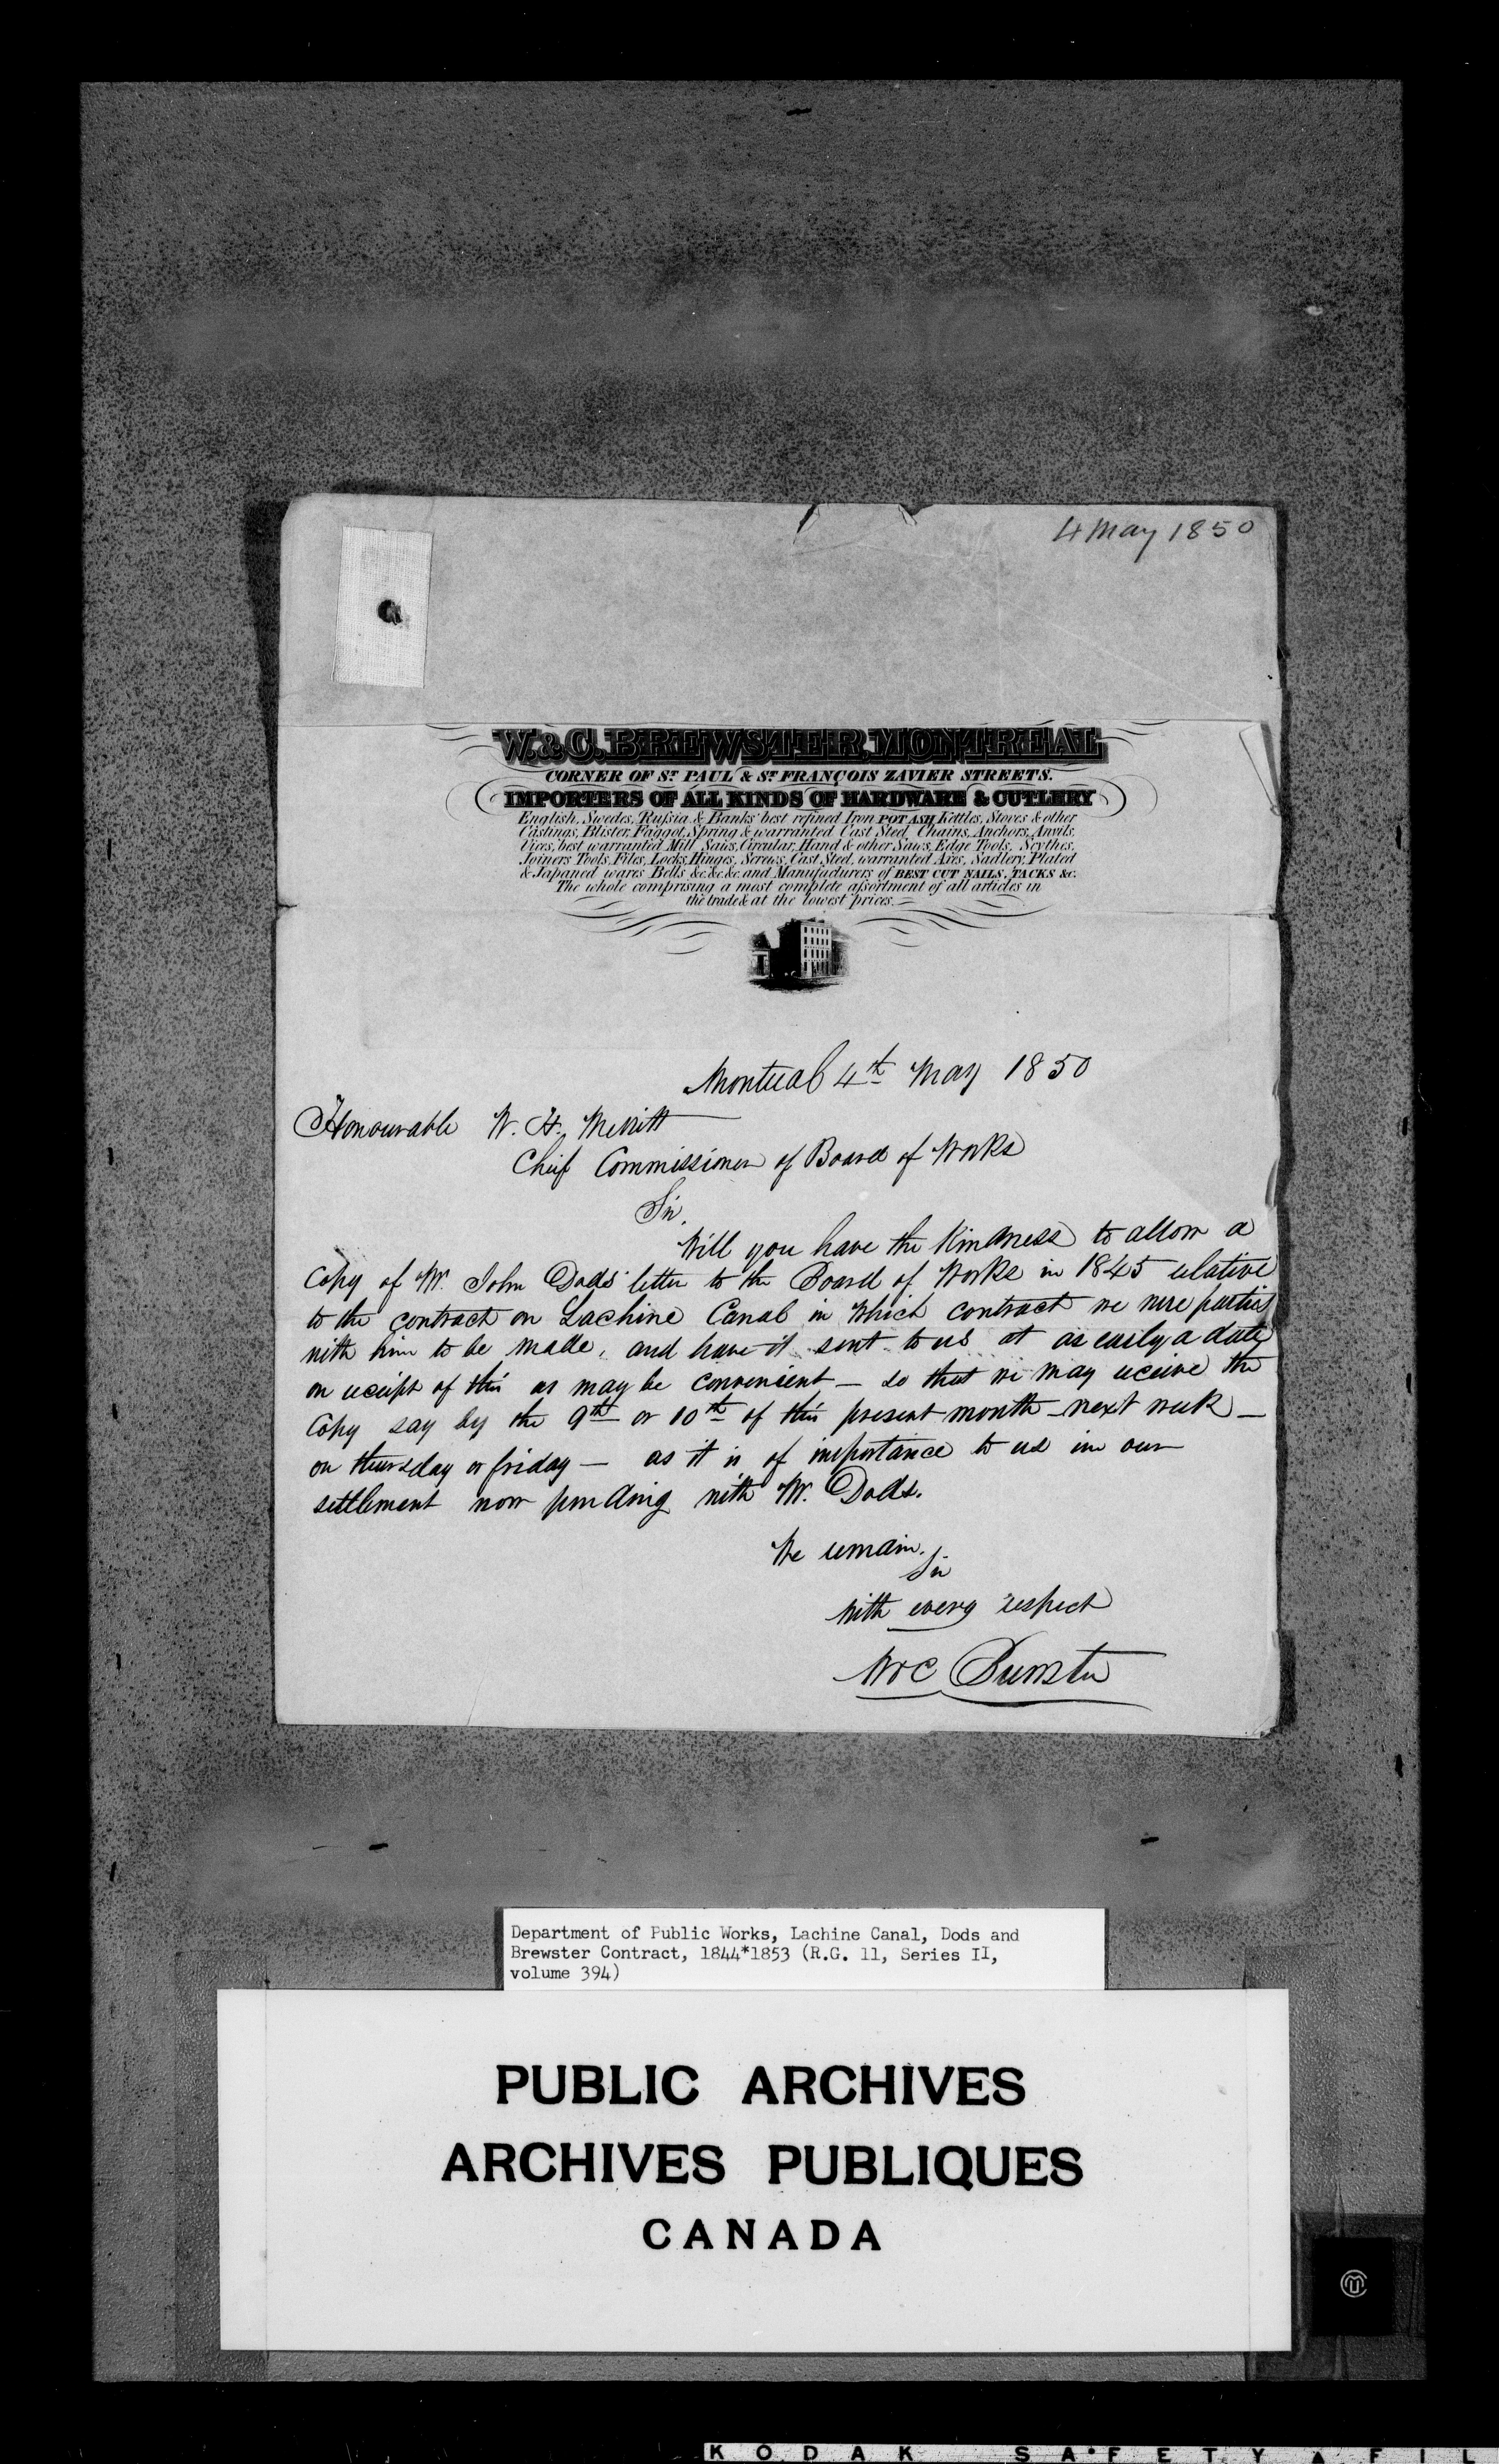 4 May 1850
W. & C. BREWSTER, MONTREAL
CORNER OF ST. PAUL & ST. FRANÇOIS ZAVIER STREETS.
IMPORTERS OF ALL KINDS OF HARDWARE & CUTLERY
English, Swedes, Russia & Banks' best refined Iron POT ASH Kettles, Stoves & other
Castings, Blister, Faggot, Spring & warranted Cast Steel, Chains, Anchors, Anvils,
Vices, best warranted Mill Saws, Circular, Hand & other Saws, Edge Tools, Scythes,
Joiners Tools, Files, Locks, Hinges, Screws, Cast Steel, warranted Axes, Sadlery, Plated
& Japaned wares Bells &c. &c. &c. and Manufacturers of BEST CUT NAILS, TACKS &c.
The whole comprising a most complete assortment of all articles in
the trade & at the lowest prices.
Montreal 4th May 1850
Honourable W. H. Merritt
Cheif Commissioner of Board of Works
Sir,
Will you have the Kindness to allow a
Copy of Mr. John Dods' letter to the Board of Works in 1845 relative
to the contract on Lachine Canal in which contract we were parties
with him to be made, and have it sent to us at as early a date
on receipt of this as may be convenient — so that we may receive the
Copy say by the 9th or 10th of this present month — next week —
on thursday or friday — as it is of importance to us in our
settlement now pending with Mr. Dods.
We remain,
Sir
With every respect
W & C Brewster
Department of Public Works, Lachine Canal, Dods and
Brewster Contract, 1844*1853 (R.G. 11, Series II,
volume 394)
PUBLIC ARCHIVES
ARCHIVES PUBLIQUES
CANADA
KODAK SAFETY FIL